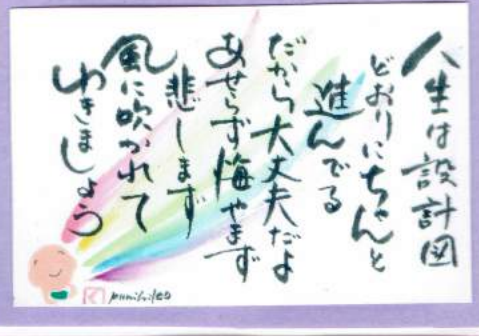 人生は設計図
どおりにちゃんと
進んでる
だから大丈夫だよ
あせらず悔やまず
悲しまず
風に吹かれて
ゆきましょう